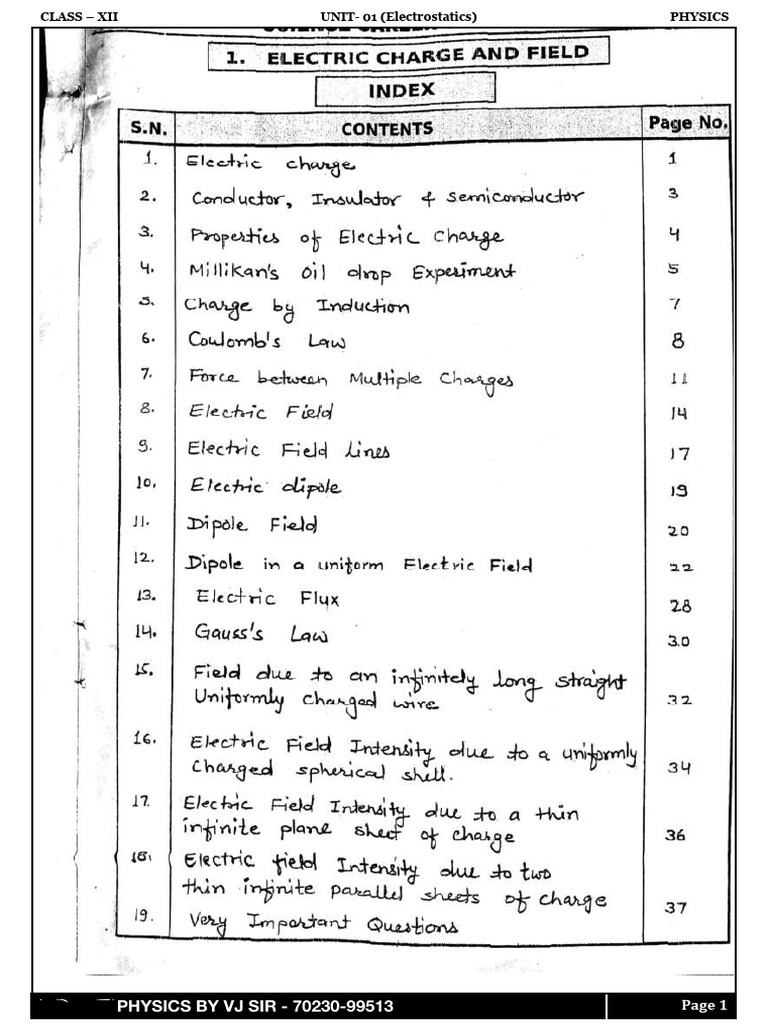 CLASS – XII UNIT- 01 (Electrostatics) PHYSICS
1. ELECTRIC CHARGE AND FIELD
INDEX
S.N. CONTENTS Page No.
1. Electric charge 1
2. Conductor, Insulator & Semiconductor 3
3. Properties of Electric Charge 4
4. Millikan's Oil drop Experiment 5
5. Charge by Induction 7
6. Coulomb's Law 8
7. Force between Multiple Charges 11
8. Electric Field 14
9. Electric Field lines 17
10. Electric dipole 19
11. Dipole Field 20
12. Dipole in a uniform Electric Field 22
13. Electric Flux 28
14. Gauss's Law 30
15. Field due to an infinitely long straight
Uniformly charged wire 32
16. Electric Field Intensity due to a uniformly
Charged spherical shell. 34
17. Electric Field Intensity due to a thin
infinite plane sheet of charge 36
18. Electric field Intensity due to two
thin infinite parallel sheets of charge 37
19. Very Important Questions
PHYSICS BY VJ SIR - 70230-99513 Page 1